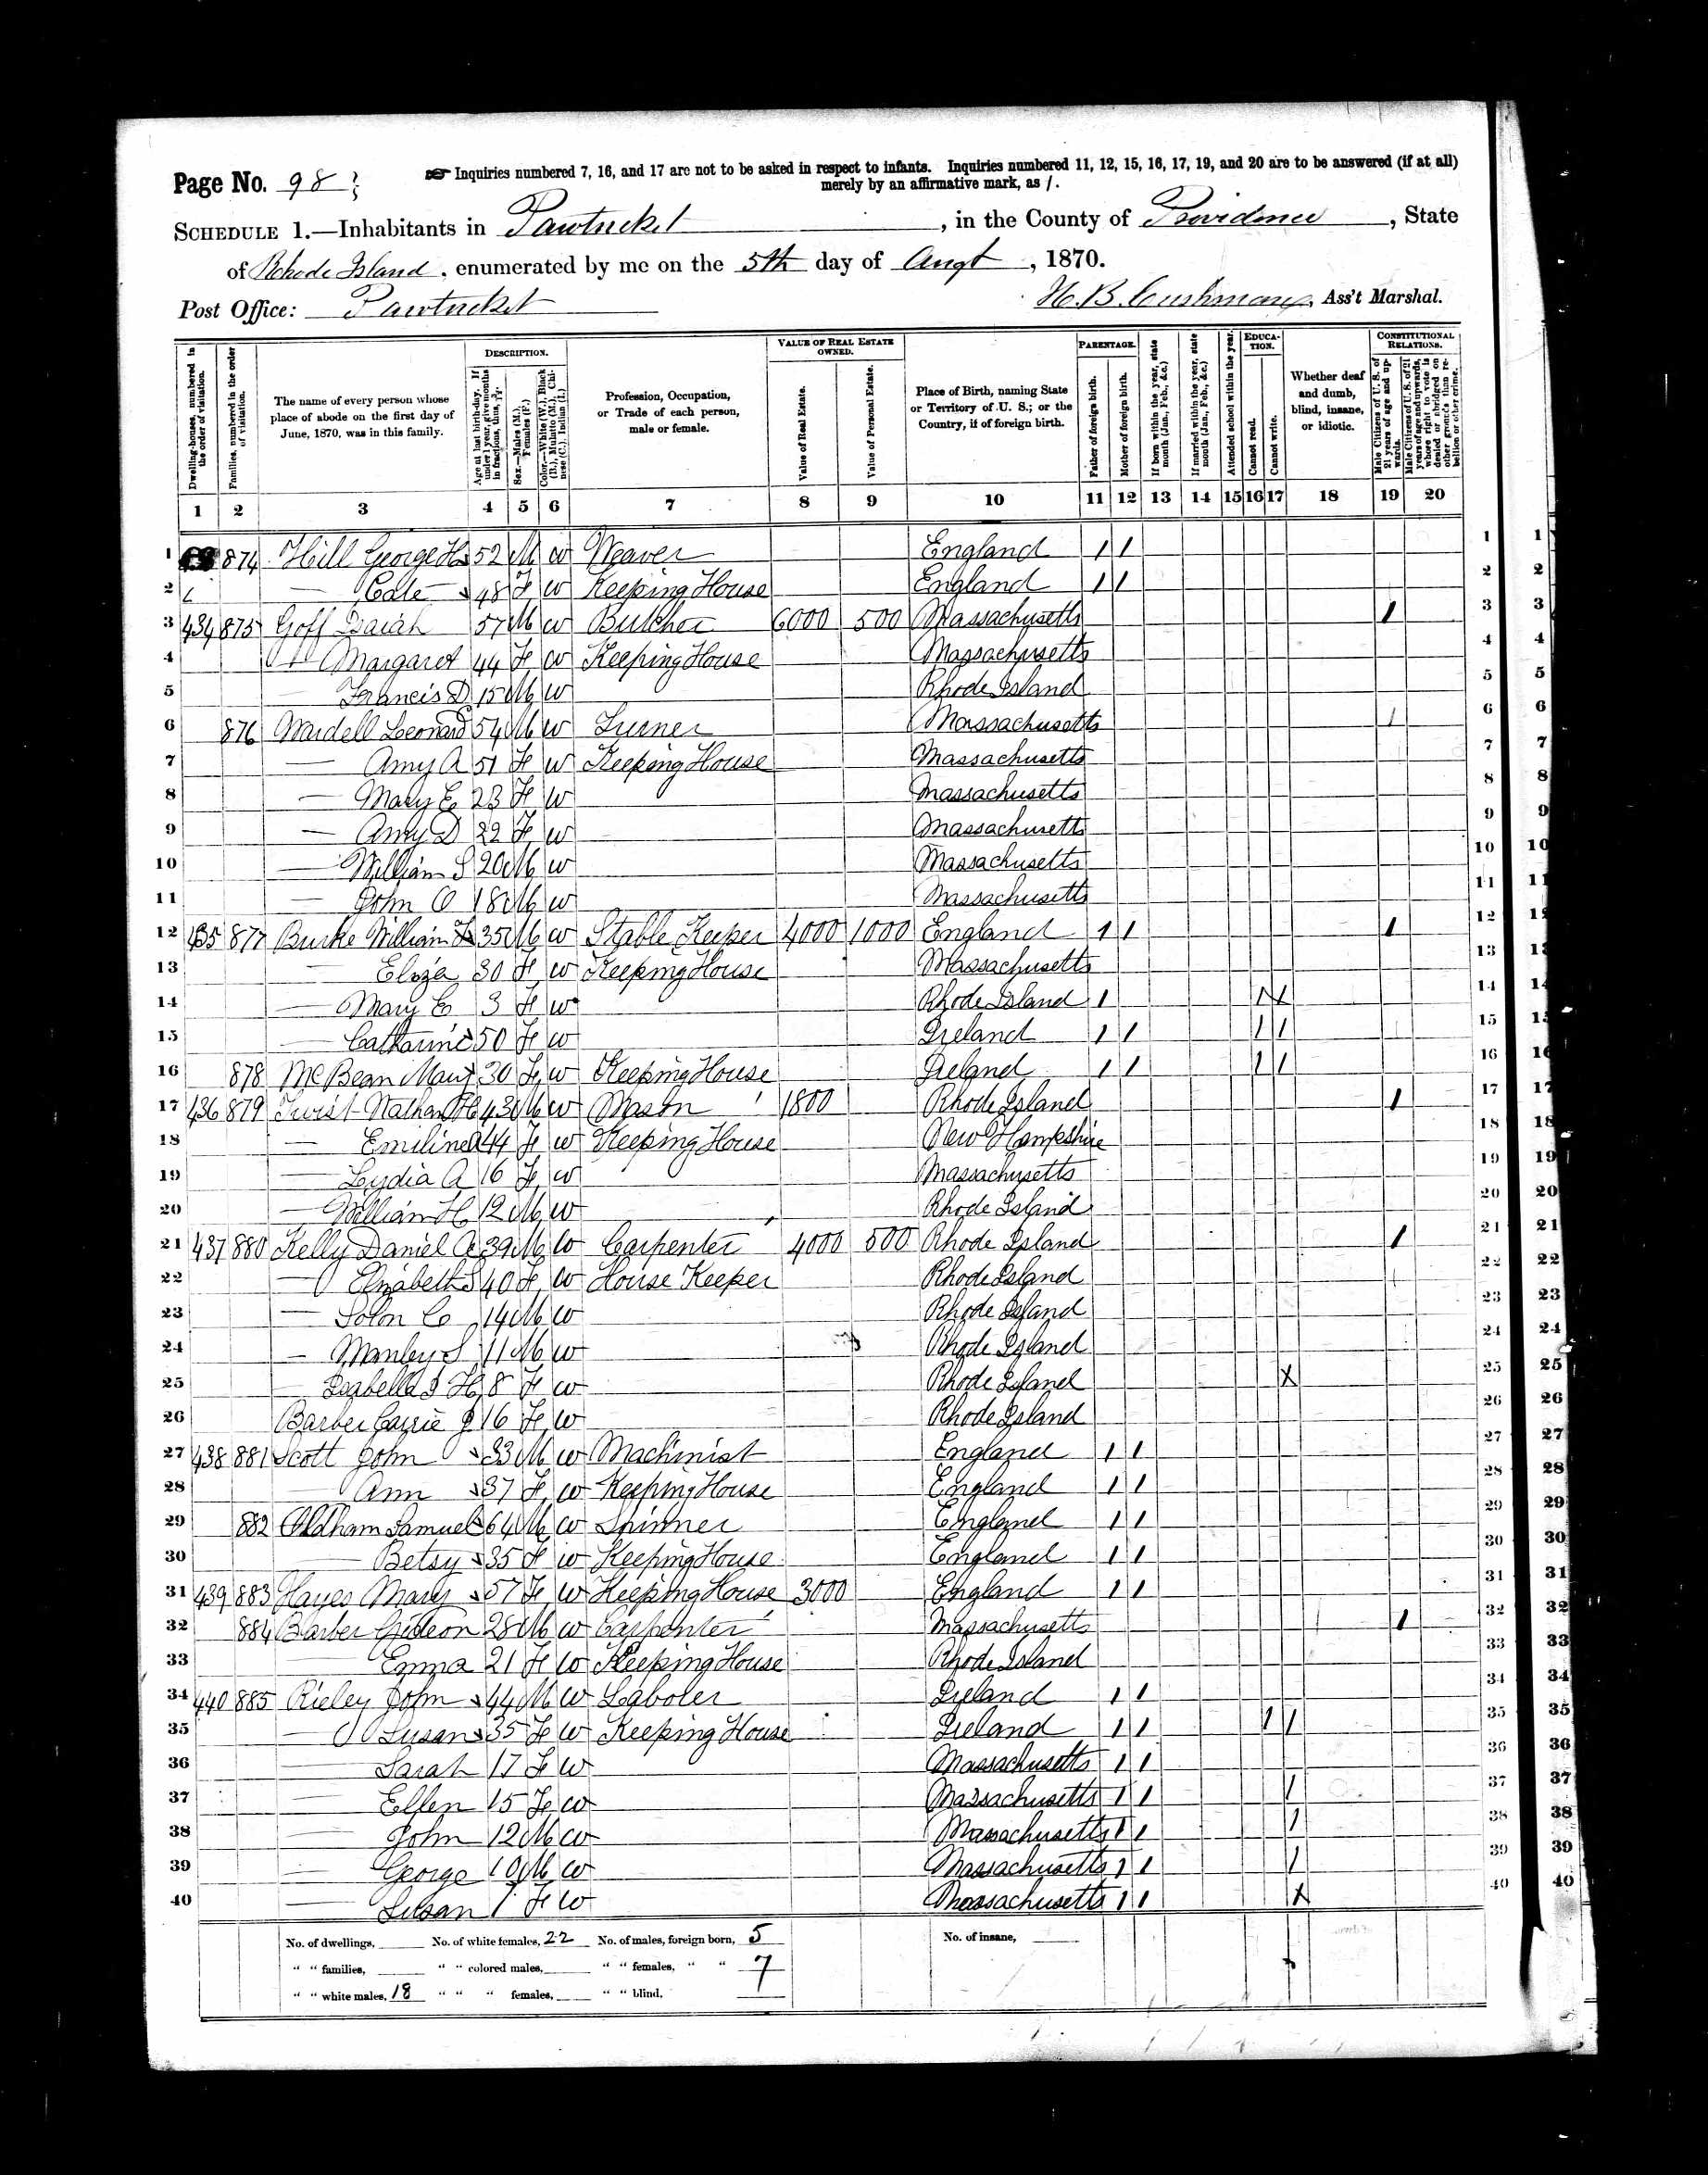 Page No. 98
Inquiries numbered 7, 16, and 17 are not to be asked in respect to infants. Inquiries numbered 11, 12, 15, 16, 17, 19, and 20 are to be answered (if at all)
merely by an affirmative mark, as /.
SCHEDULE 1.—Inhabitants in Pawtucket, in the County of Providence, State
of Rhode Island, enumerated by me on the 5th day of Augt, 1870.
Post Office: Pawtucket
H. B. Cushman, Ass't Marshal.
Dwelling-houses, numbered in the order of visitation.
Families, numbered in the order of visitation.
The name of every person whose place of abode on the first day of June, 1870, was in this family.
DESCRIPTION.
Age at last birth-day. If under 1 year, give months in fractions, thus, 3/12.
Sex.—Males (M.), Females (F.)
Color.—White (W.), Black (B.), Mulatto (M.), Chinese (C.), Indian (I.)
Profession, Occupation, or Trade of each person, male or female.
VALUE OF REAL ESTATE OWNED.
Value of Real Estate.
Value of Personal Estate.
Place of Birth, naming State or Territory of U. S.; or the Country, if of foreign birth.
PARENTAGE.
Father of foreign birth.
Mother of foreign birth.
If born within the year, state month (Jan., Feb., &c.)
If married within the year, state month (Jan., Feb., &c.)
Attended school within the year.
EDUCATION.
Cannot read.
Cannot write.
Whether deaf and dumb, blind, insane, or idiotic.
CONSTITUTIONAL RELATIONS.
Male Citizens of U. S. of 21 years of age and upwards.
Male Citizens of U. S. of 21 years of age and upwards, whose right to vote is denied or abridged on other grounds than rebellion or other crime.
1 2 3 4 5 6 7 8 9 10 11 12 13 14 15 16 17 18 19 20
1 874 Hill George H 52 M W Weaver England / / 1 1
2 — Cate 48 F W Keeping House England / / 2 2
3 434 875 Goff Isaiah 57 M W Butcher 6000 500 Massachusetts / 3 3
4 — Margaret 44 F W Keeping House Massachusetts 4 4
5 — Francis D 15 M W Rhode Island 5 5
6 876 Wardell Leonard 54 M W Turner Massachusetts / 6 6
7 — Amy A 51 F W Keeping House Massachusetts 7 7
8 — Mary E 23 F W Massachusetts 8 8
9 — Amy D 22 F W Massachusetts 9 9
10 — William S 20 M W Massachusetts 10 10
11 — John O 18 M W Massachusetts 11 11
12 435 877 Burke William 35 M W Stable Keeper 4000 1000 England / / / 12 12
13 — Eliza 30 F W Keeping House Massachusetts 13 13
14 — Mary E 3 F W Rhode Island / 14 14
15 — Catharine 50 F W Ireland / / / / 15 15
16 878 McBean Mary 30 F W Keeping House Ireland / / / / 16 16
17 436 879 Twist Nathan H 43 M W Mason 1800 Rhode Island / 17 17
18 — Emiline A 44 F W Keeping House New Hampshire 18 18
19 — Lydia A 16 F W Massachusetts 19 19
20 — William H 12 M W Rhode Island 20 20
21 437 880 Kelly Daniel A 39 M W Carpenter 4000 500 Rhode Island / 21 21
22 — Elizabeth S 40 F W House Keeper Rhode Island 22 22
23 — Solon C 14 M W Rhode Island 23 23
24 — Manley S 11 M W Rhode Island 24 24
25 — Isabella H 8 F W Rhode Island X 25 25
26 Barber Carrie J 16 F W Rhode Island 26 26
27 438 881 Scott John 33 M W Machinist England / / 27 27
28 Ann 37 F W Keeping House England / / 28 28
29 882 Oldham Samuel 64 M W Spinner England / / 29 29
30 — Betsy 35 F W Keeping House England / / 30 30
31 439 883 Hayes Mary 57 F W Keeping House 3000 England / / 31 31
32 884 Barber Gideon 28 M W Carpenter Massachusetts / 32 32
33 — Emma 21 F W Keeping House Rhode Island 33 33
34 440 885 Rieley John 44 M W Laborer Ireland / / 34 34
35 — Susan 35 F W Keeping House Ireland / / / / 35 35
36 — Sarah 17 F W Massachusetts / / 36 36
37 — Ellen 15 F W Massachusetts / / / 37 37
38 — John 12 M W Massachusetts / / / 38 38
39 — George 10 M W Massachusetts / / / 39 39
40 — Susan 7 F W Massachusetts / / X 40 40
No. of dwellings, No. of white females, 22 No. of males, foreign born, 5 No. of insane,
" " families, " " colored males, " " females, " " 7
" " white males, 18 " " " females, " " blind,